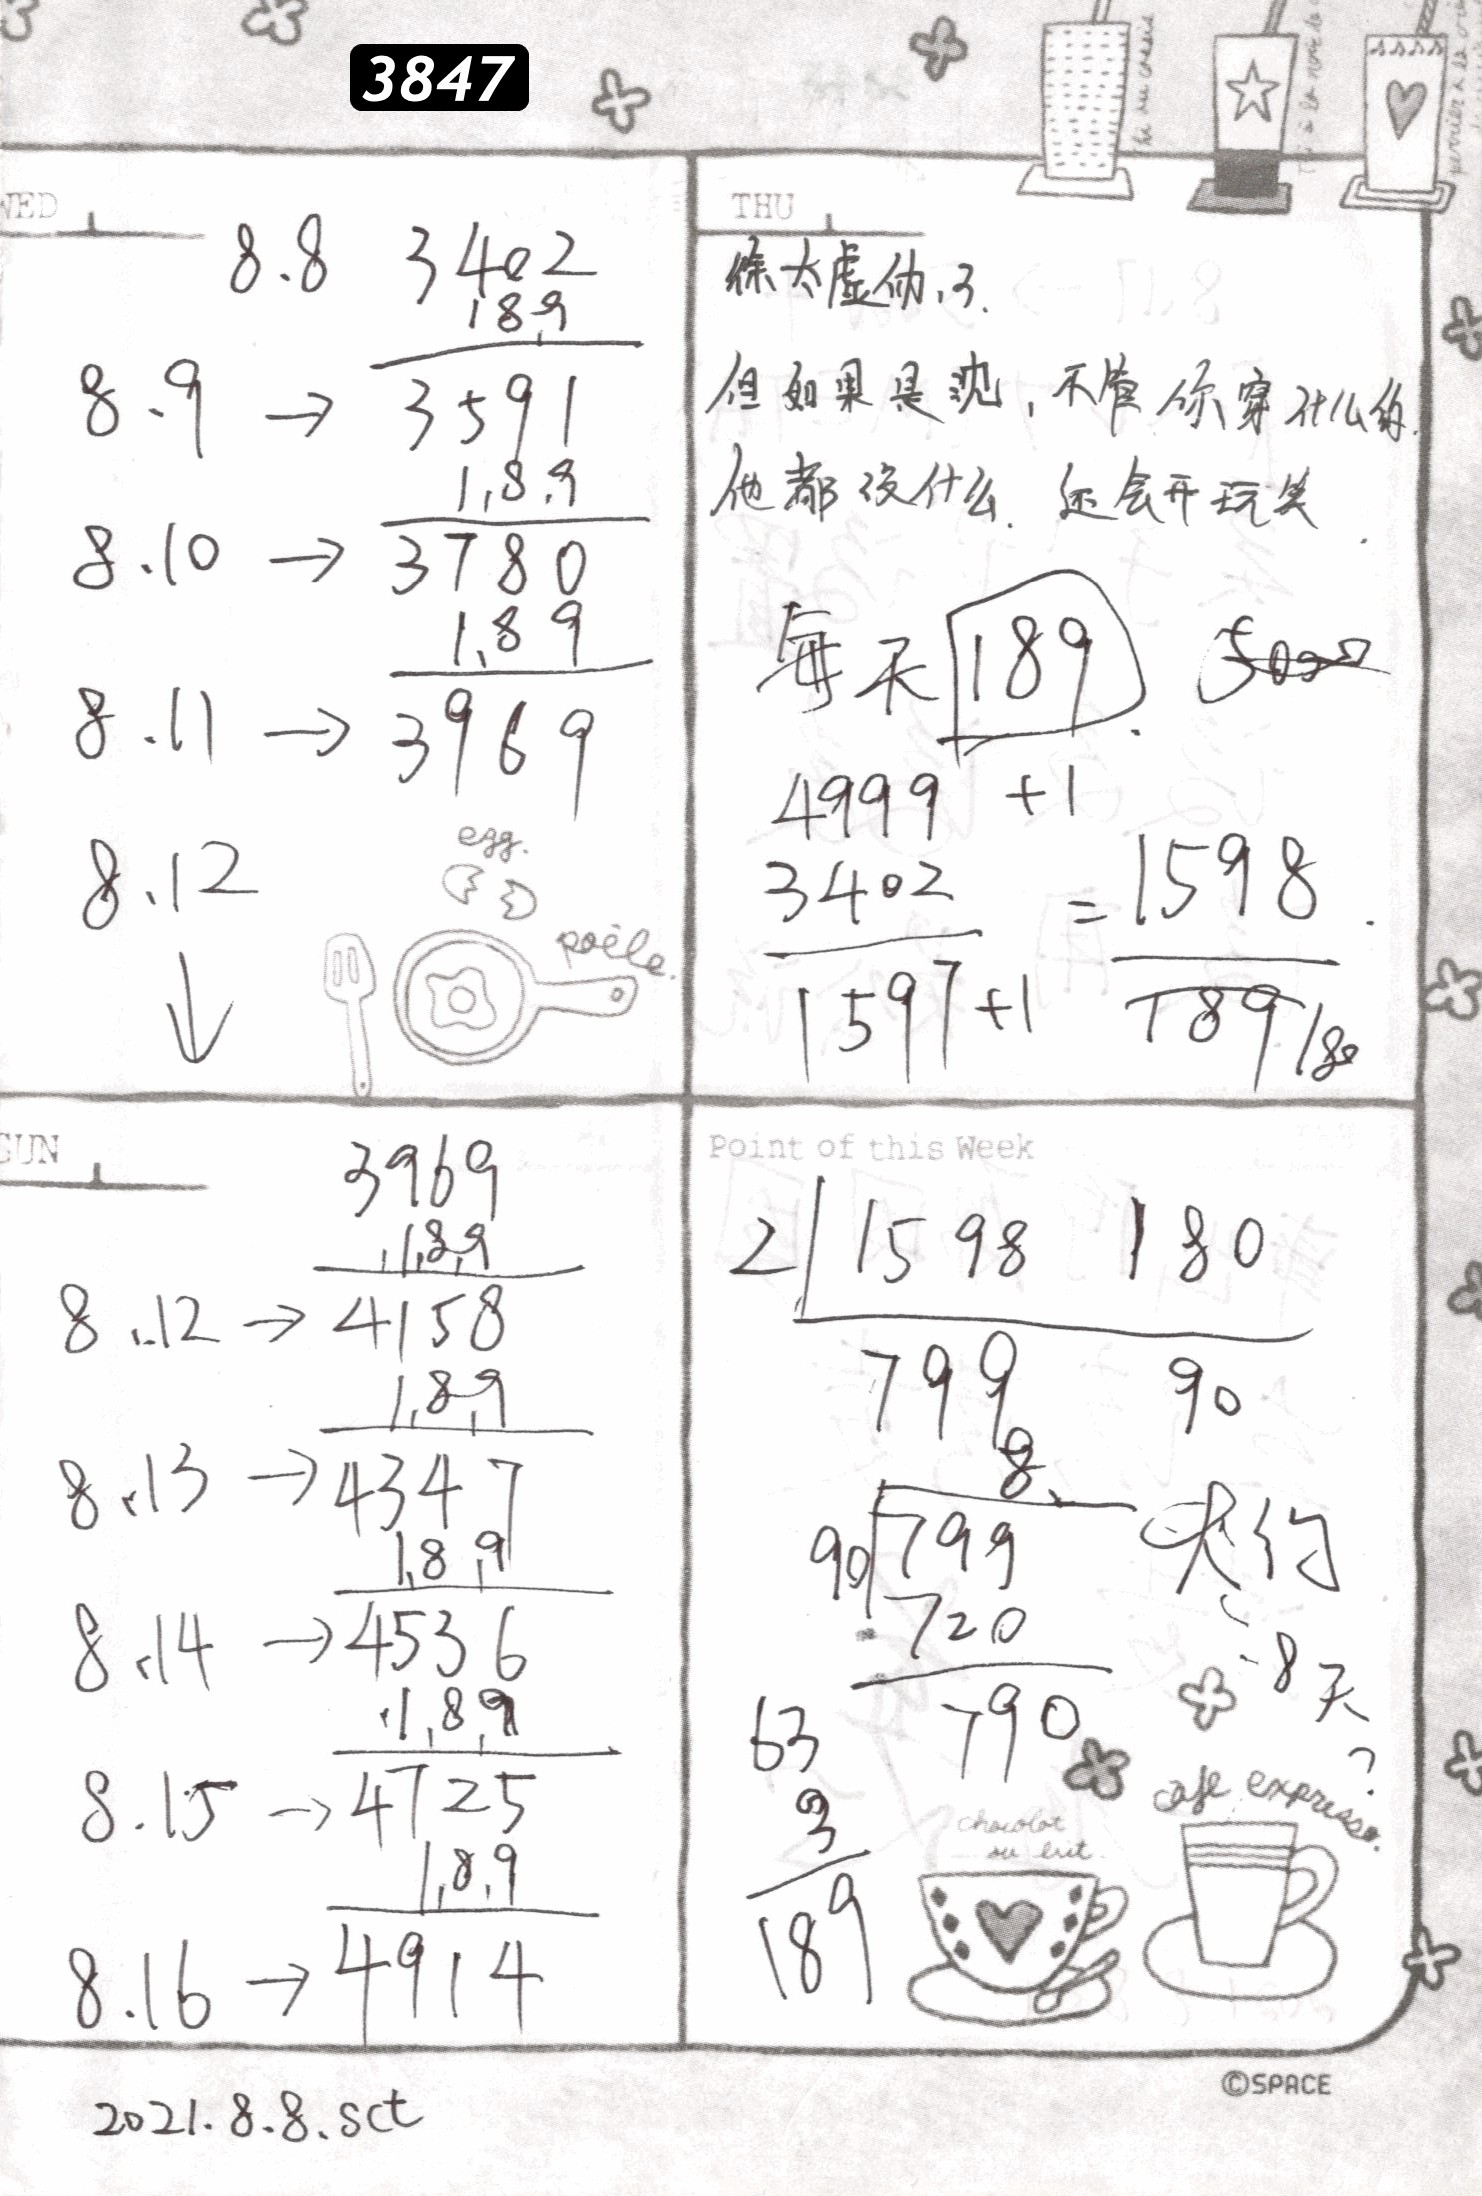 3847
WED
8.8 3402
189
8.9 → 3591
189
8.10 → 3780
189
8.11 → 3969
8.12
↓
egg.
poêle.
THU
徐太虚伪了.
但如果是沈, 不管你穿什么的.
他都没什么. 还会开玩笑.
每天 189. 5000
4999 +1
3402 = 1598.
1597+1 189 180
SUN
3969
189
8.12 → 4158
189
8.13 → 4347
189
8.14 → 4536
189
8.15 → 4725
189
8.16 → 4914
Point of this Week
2 1598 180
799 90
8.
90 799 大约
720 8天
790 ?
63
3
189
chocolat
au lait
cafe expresso.
©SPACE
2021.8.8.sct